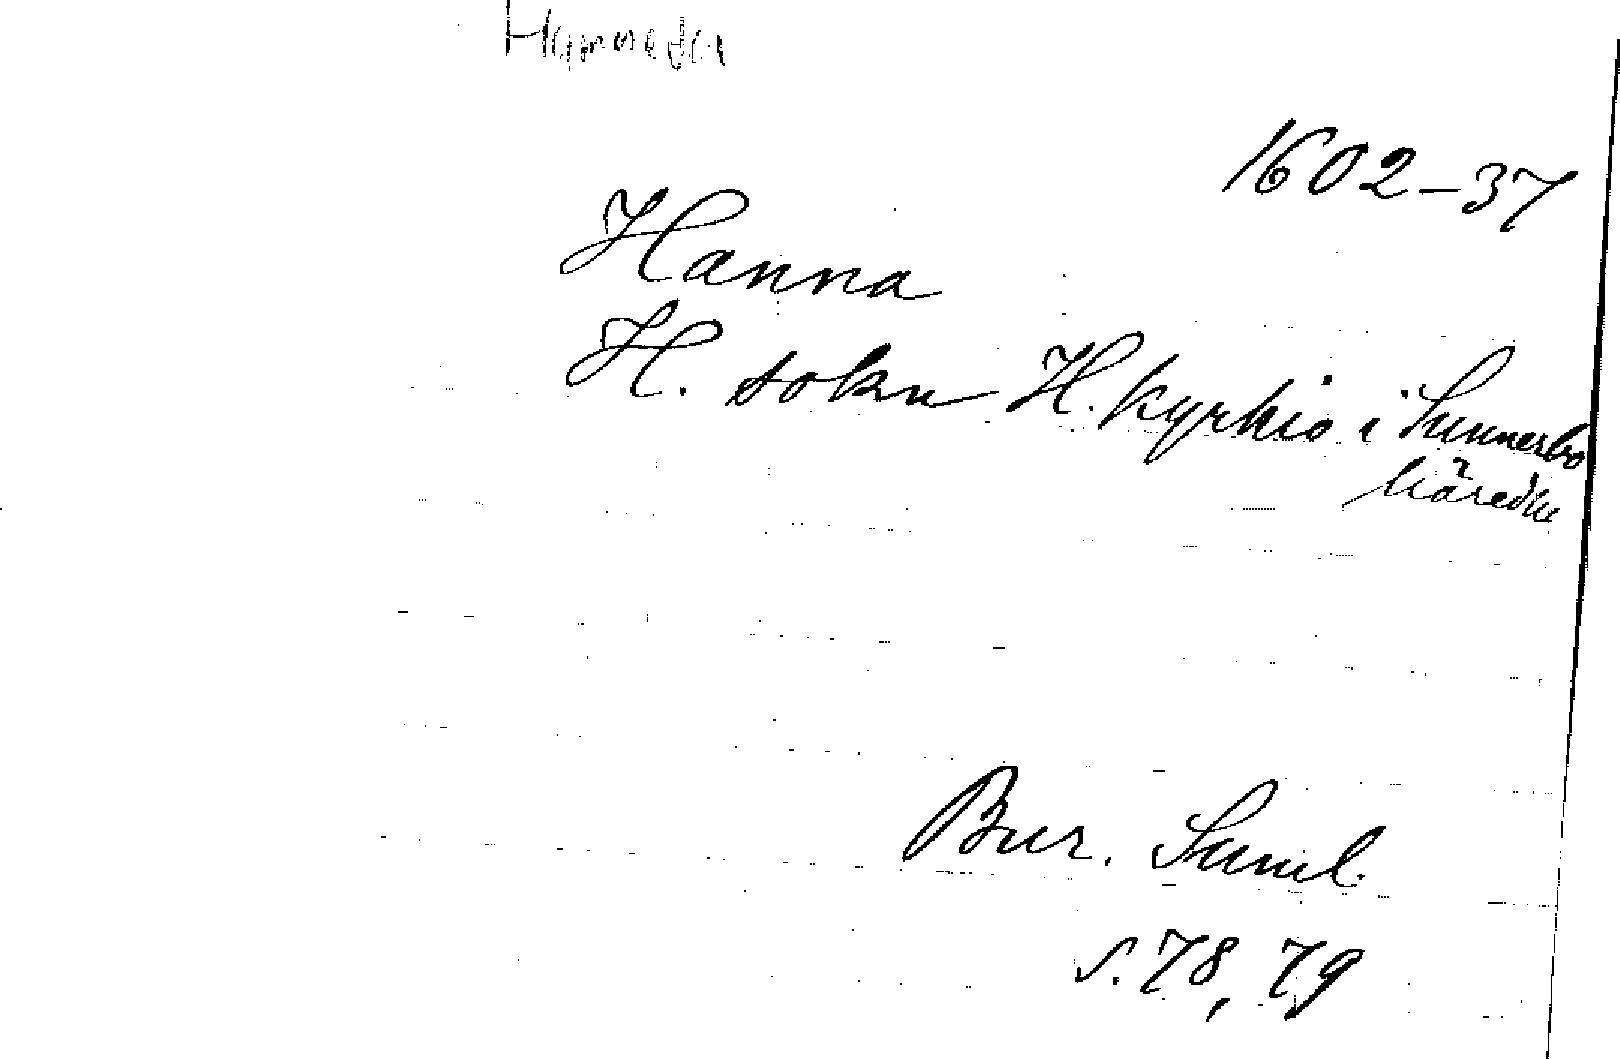 Hanneda
1602-37
Hanna
H. sokn H. kyrkio i Sunnerbo
häredhe
Bur. Suml.
s. 78, 79